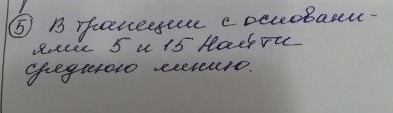 ⑤ В трапеции с основани-
ями 5 и 15 Найти
среднюю линию.